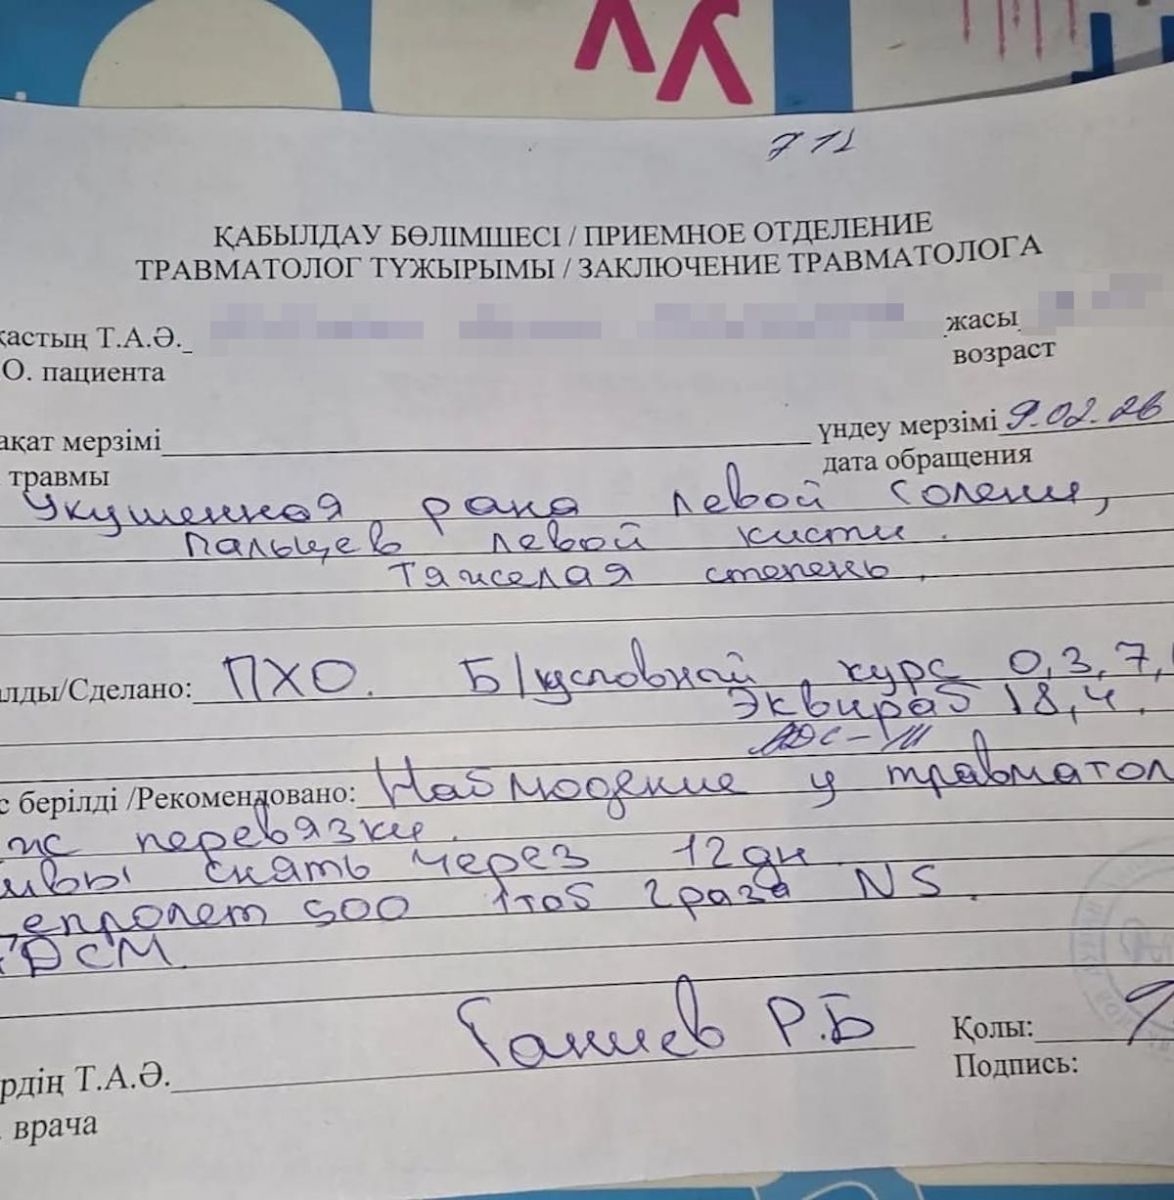 УУ
711
ҚАБЫЛДАУ БӨЛІМШЕСІ / ПРИЕМНОЕ ОТДЕЛЕНИЕ
ТРАВМАТОЛОГ ТҰЖЫРЫМЫ / ЗАКЛЮЧЕНИЕ ТРАВМАТОЛОГА
қастың Т.А.Ә. жасы
О. пациента возраст
ақат мерзімі үндеу мерзімі 9.02.26
травмы дата обращения
Укушенная рана левой голени,
пальцев левой кисти.
Тяжелая степень.
алды/Сделано: ПХО. Б/условный курс 0,3,7,
Эквираб 18,4.
с берілді /Рекомендовано: Наблюдение у травматол
перевязки.
швы снять через 12дн
ципролет 500 1таб 2раза N5.
Ганиев Р.Б
рдің Т.А.Ә. Қолы:
врача Подпись: